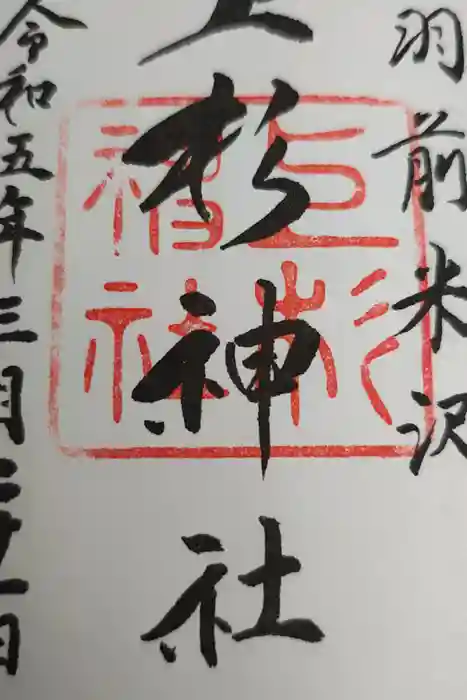 羽前米沢
上杉神社
令和五年三月二十一日
上杉
神社